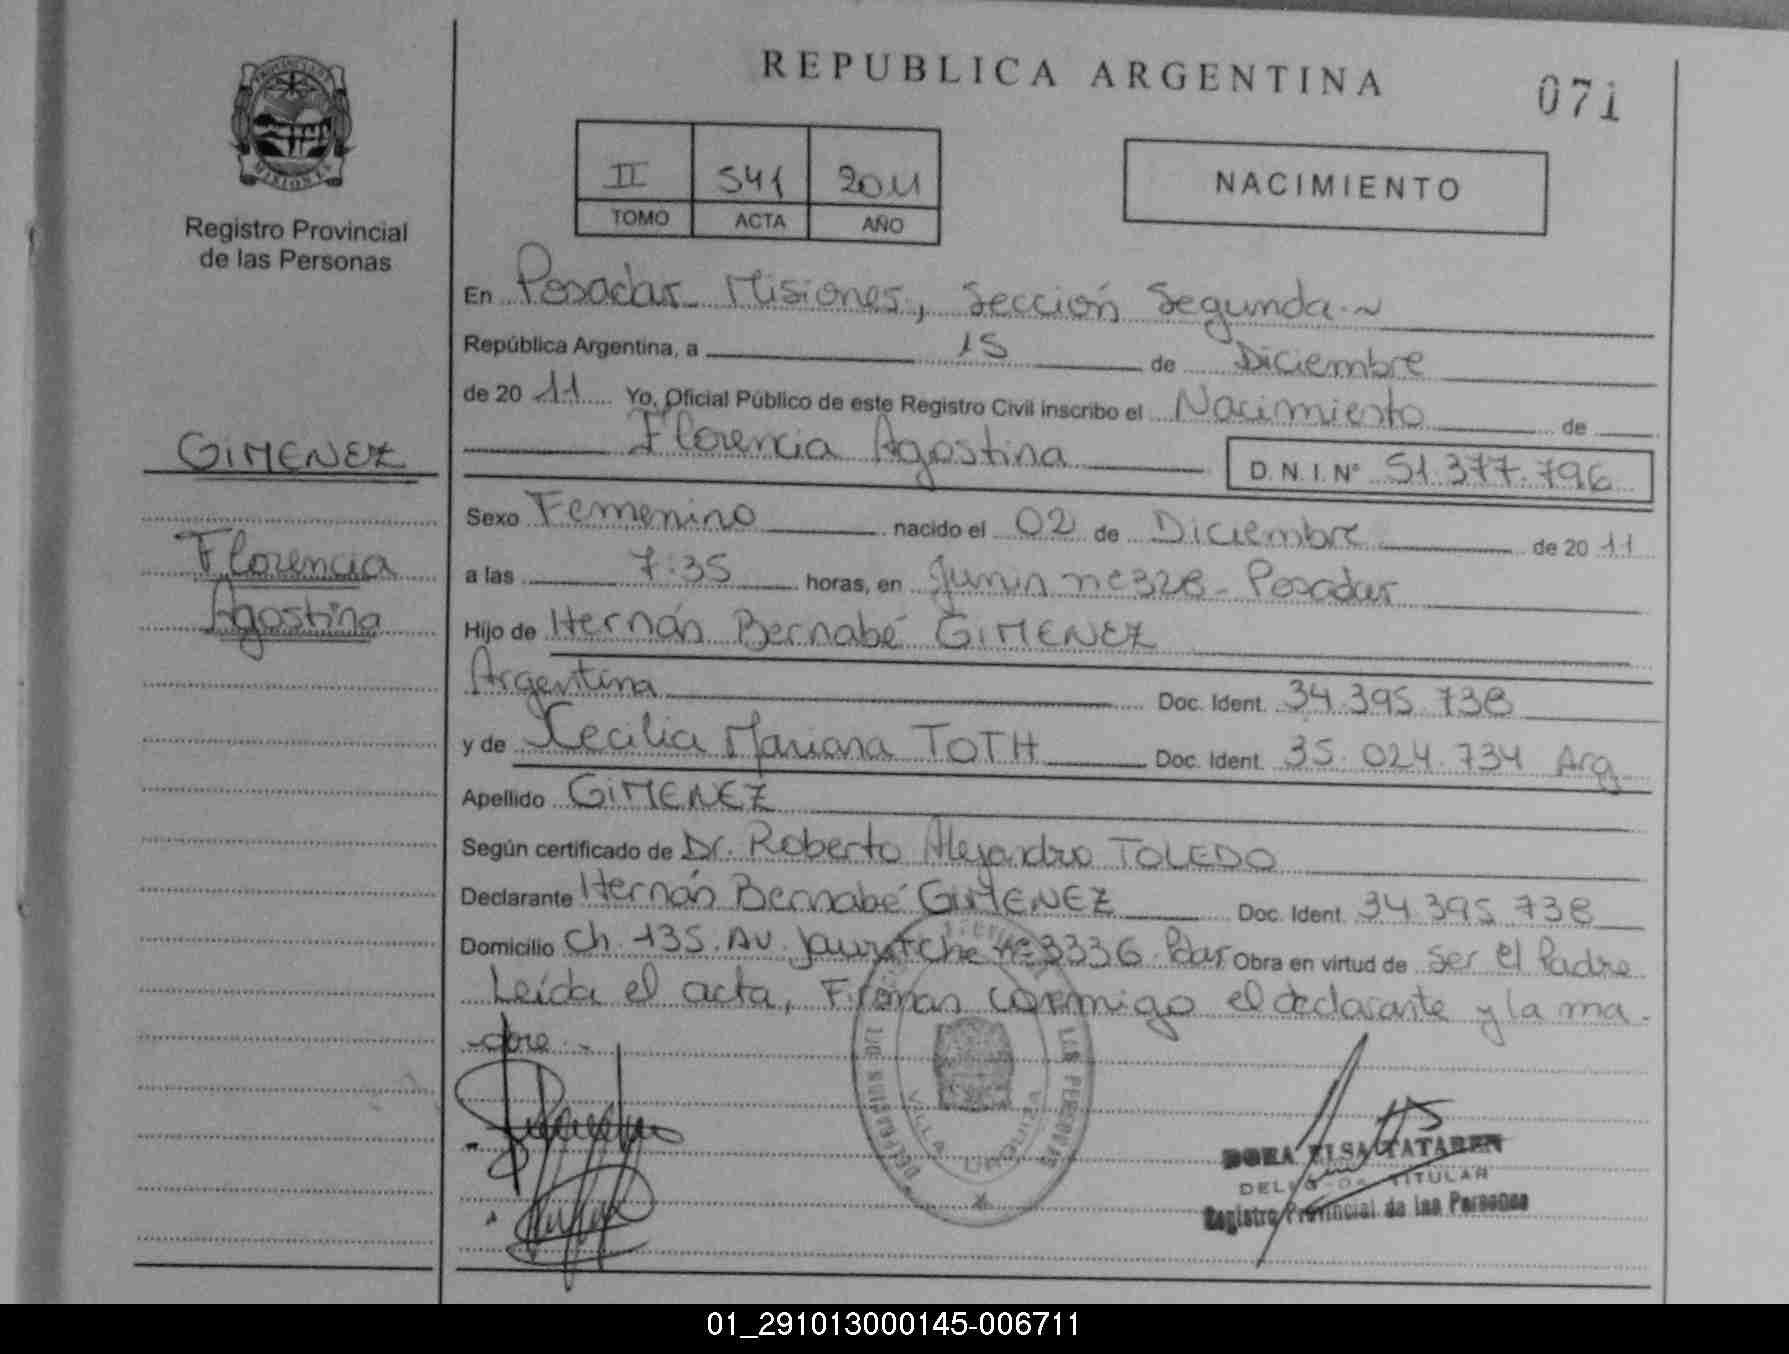 REPUBLICA ARGENTINA
071
PROVINCIA DE
MISIONES
Registro Provincial
de las Personas
II 541 2011
TOMO ACTA AÑO
NACIMIENTO
En Posadas Misiones, Sección Segunda.~
República Argentina, a 15 de Diciembre
de 20 11 Yo, Oficial Público de este Registro Civil inscribo el Nacimiento de
Florencia Agostina D.N.I.Nº 51.377.796
GIMENEZ
Florencia
Agostina
Sexo Femenino nacido el 02 de Diciembre de 20 11
a las 7:35 horas, en Junin nº 328 - Posadas
Hijo de Hernán Bernabé GIMENEZ
Argentina Doc. Ident. 34.395.738
y de Cecilia Mariana TOTH Doc. Ident. 35.024.734 Arg.
Apellido GIMENEZ
Según certificado de Dr. Roberto Alejandro TOLEDO
Declarante Hernán Bernabé GIMENEZ Doc. Ident. 34.395.738
Domicilio Ch. 135. Av. Jauretche nº 3336. Pdas Obra en virtud de ser el Padre
Leída el acta, Firman conmigo el declarante y la ma-
dre.-
LAS PERSONAS
VILLA URQUIZA
DORA ELSA TATAREN
DELEGADA TITULAR
Registro Provincial de las Personas
01_291013000145-006711